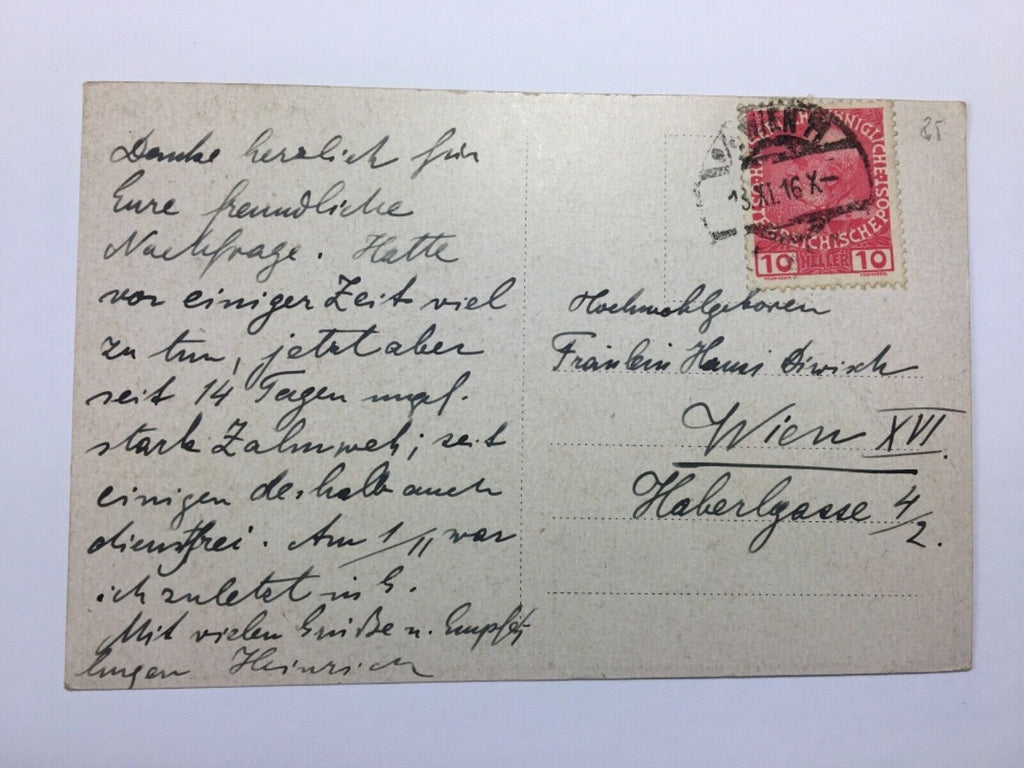 Danke herzlich für
Eure freundliche
Nachfrage. Hatte
vor einiger Zeit viel
zu tun, jetzt aber
seit 14 Tagen
stark Zahnweh; seit
einigen deshalb auch
dienstfrei. Am 1/11 war
ich zuletzt in
Mit vielen Grüße u. Empfeh
lungen Heinrich
85
WIEN
13.XI.16 X
10 HELLER 10
Hochwohlgeboren
Fräulein Hansi Diwisch
Wien XVI.
Haberlgasse 4/2.